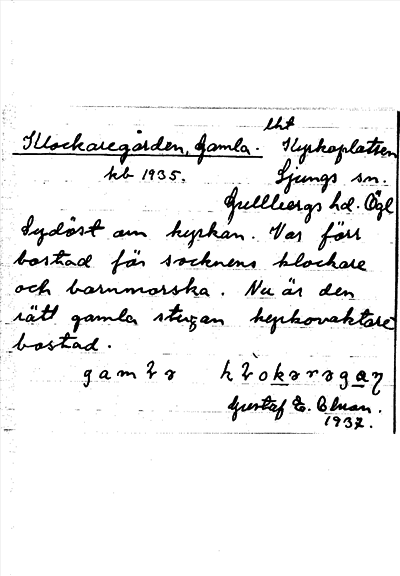 lht
Klockaregården, Gamla. Kyrkoplatsen
kb 1935. Ljungs sn.
Gullbergs hd. Ögl
Sydöst om kyrkan. Var förr
bostad för socknens klockare
och barnmorska. Nu är den
rätt gamla stugan kyrkovaktare
bostad.
Gustaf E.
1937.